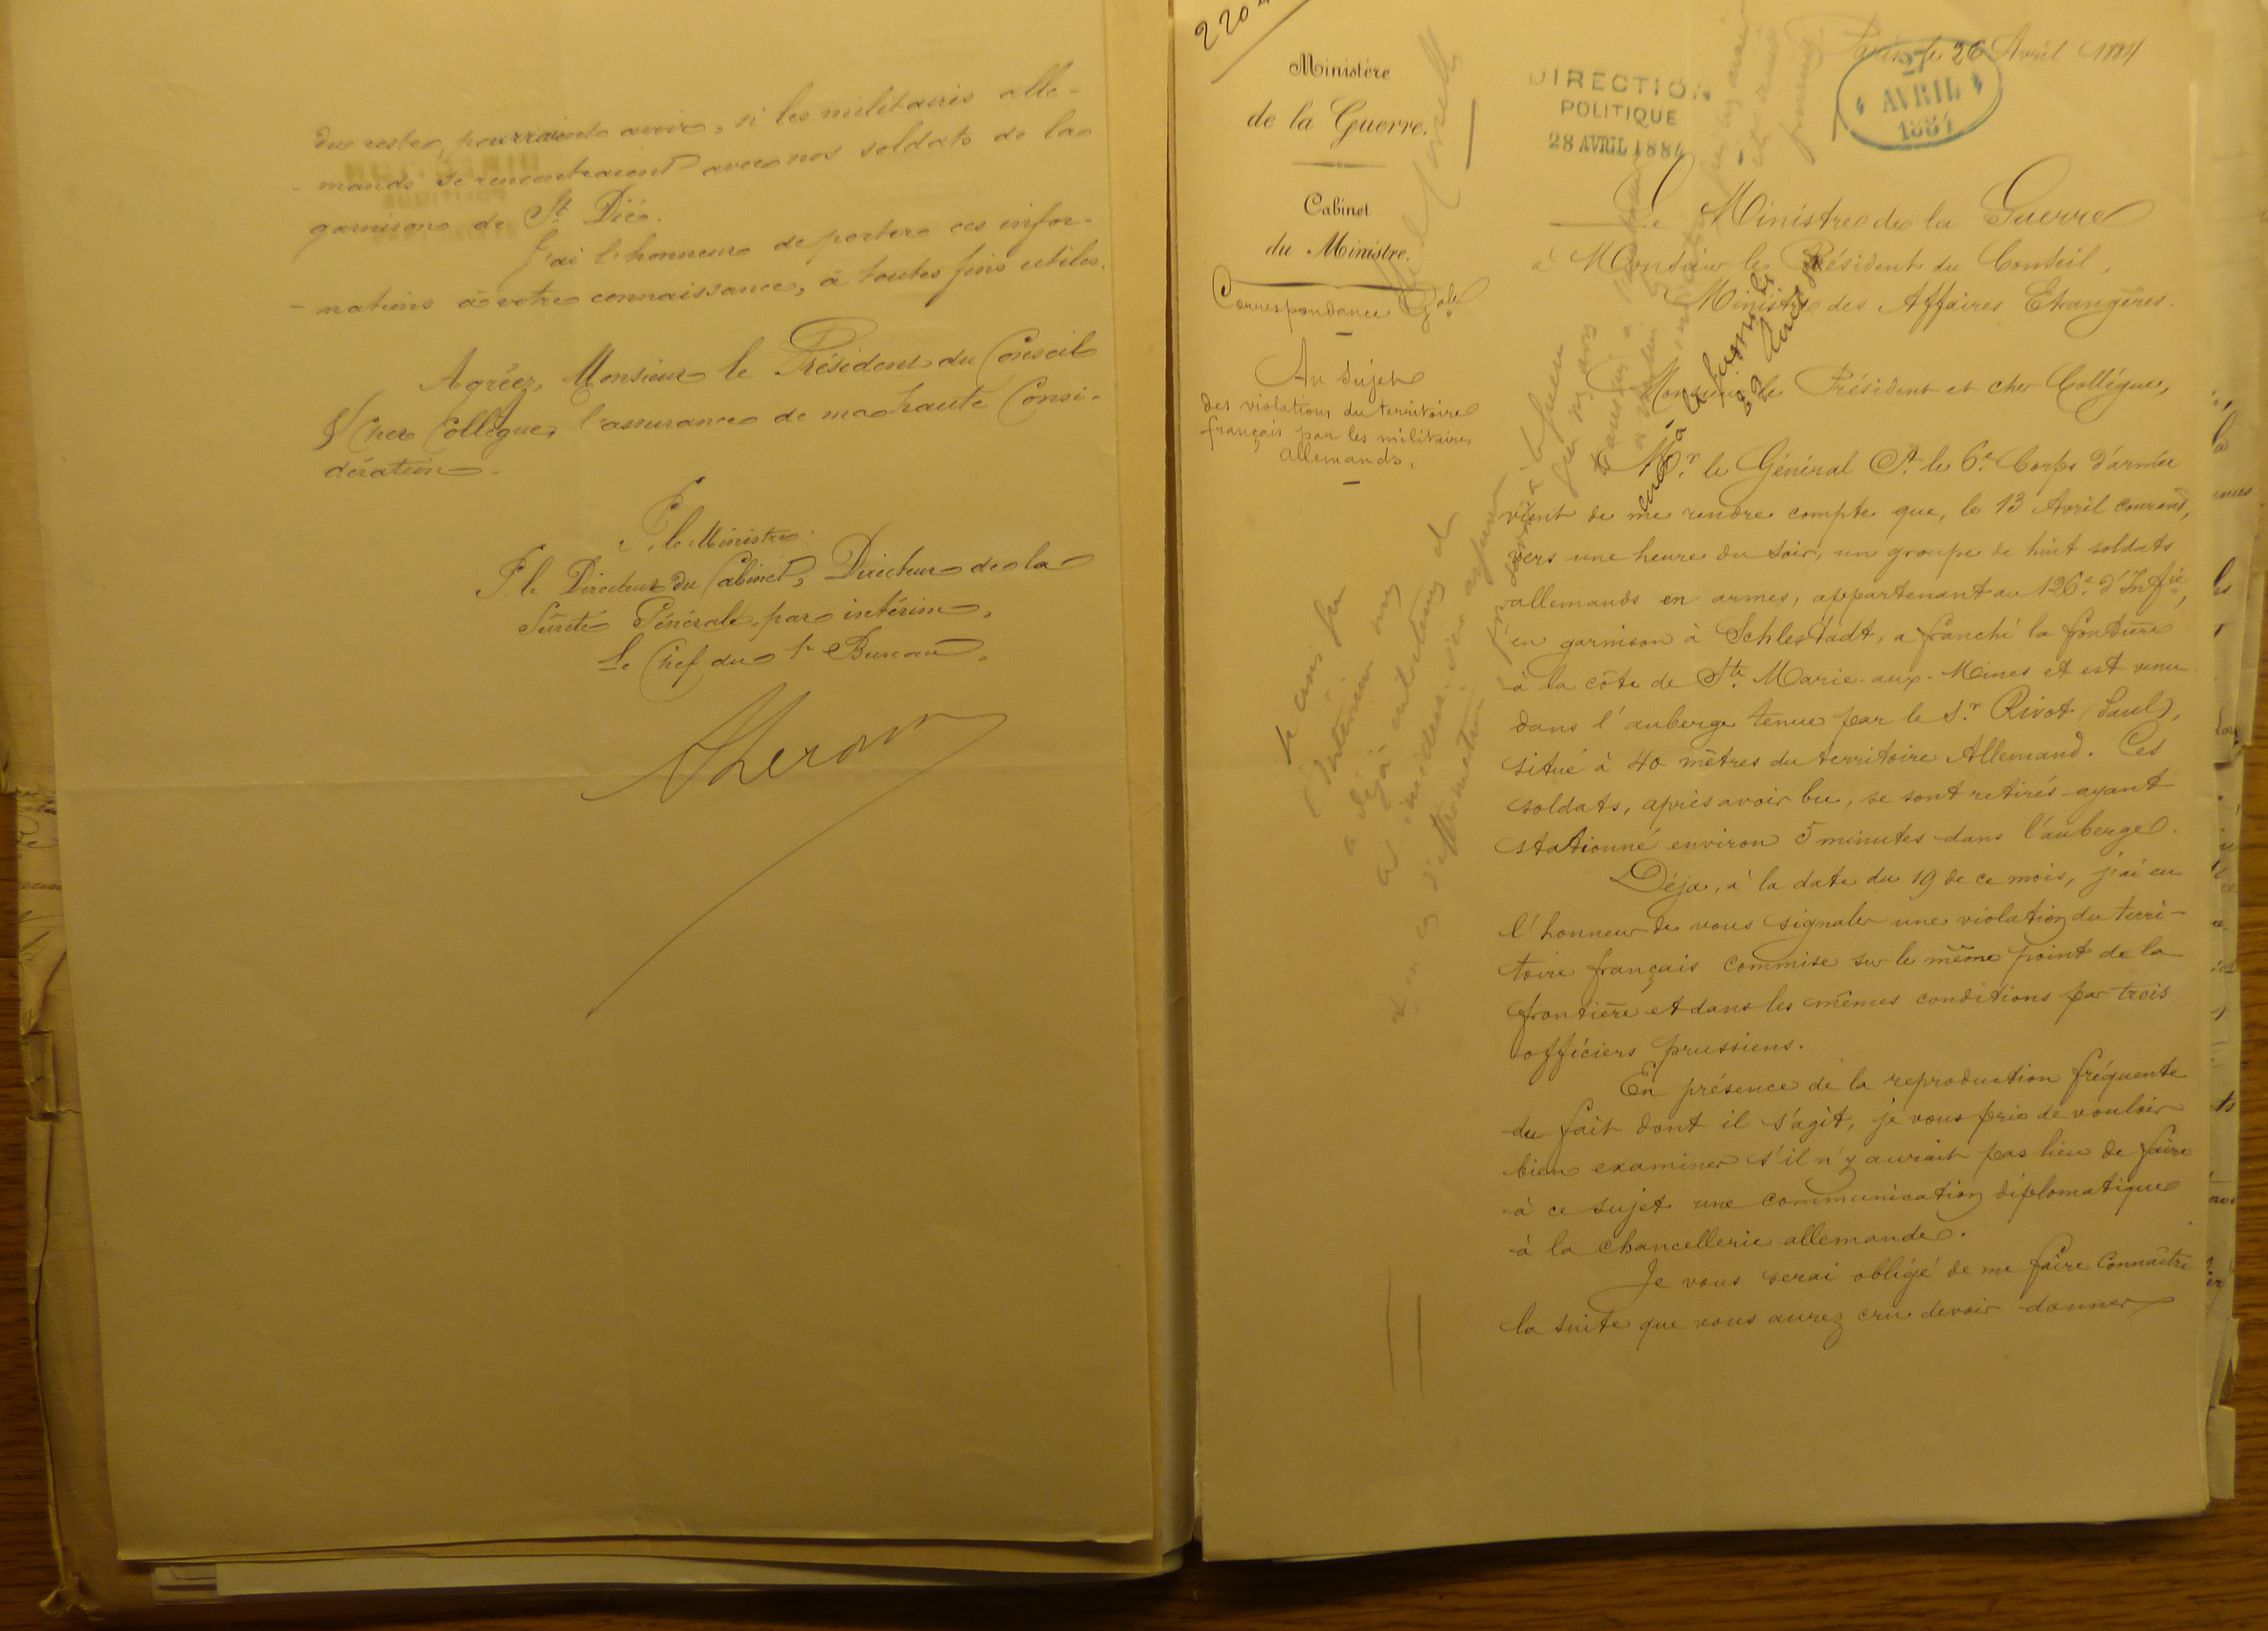 du reste, pourraient avoir, si les militaires alle-
mands se rencontraient avec nos soldats de la
garnison de St Dié.
J'ai l'honneur de porter ces infor-
-mations à votre connaissance, à toutes fins utiles.
Agréez, Monsieur le Président du Conseil
& Cher Collègue, l'assurance de ma haute Consi-
dération.
P. le Ministre:
P. le Directeur du Cabinet, Directeur de la
Sûreté Générale, par intérim,
Le Chef du 1er Bureau,
220
Ministère
de la Guerre.
Cabinet
du Ministre.
Correspondance Gale
Au sujet
des violations du territoire
français par les militaires
allemands.
DIRECTION
POLITIQUE
28 AVRIL 1884
Paris, le 26 Avril 1884
27
AVRIL
1884
Le Ministre de la Guerre
à Monsieur le Président du Conseil,
Ministre des Affaires Etrangères.
Monsieur le Président et cher Collègue,
Mr. le Général Ct. le 6e. Corps d'armée
vient de me rendre compte que, le 13 Avril courant,
vers une heure du soir, un groupe de huit soldats
allemands en armes, appartenant au 126e. d'Infie,
en garnison à Schlestadt, a franchi la frontière
à la côte de Ste. Marie-aux-Mines et est venu
dans l'auberge tenue par le Sr. Rivot (Paul),
situé à 40 mètres du territoire Allemand. Ces
soldats, après avoir bu, se sont retirés ayant
stationné environ 5 minutes dans l'auberge.
Déja, à la date du 19 de ce mois, j'ai eu
l'honneur de vous signaler une violation du terri-
toire français commise sur le même point de la
frontière et dans les mêmes conditions par trois
officiers prussiens.
En présence de la reproduction fréquente
du fait dont il s'agit, je vous prie de vouloir
bien examiner s'il n'y aurait pas lieu de faire
à ce sujet une communication diplomatique
à la chancellerie allemande.
Je vous serai obligé de me faire connaître
la suite que vous aurez cru devoir donner